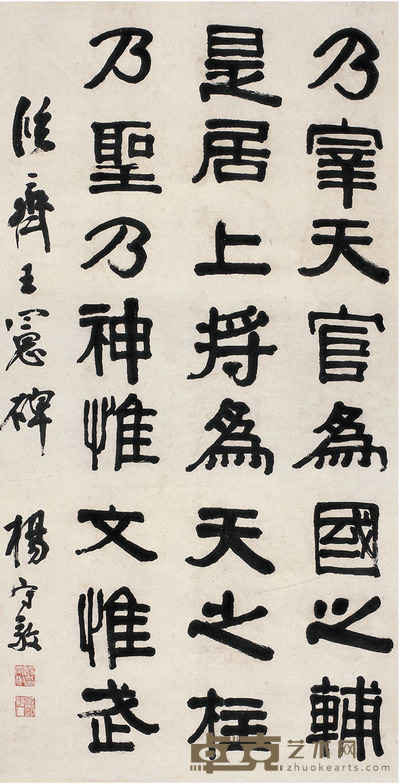 乃宰天官為國之輔
是居上將為天之柱
乃聖乃神惟文惟武
臨齊王憲碑 楊守敬
卓克艺术网
zhuokearts.com